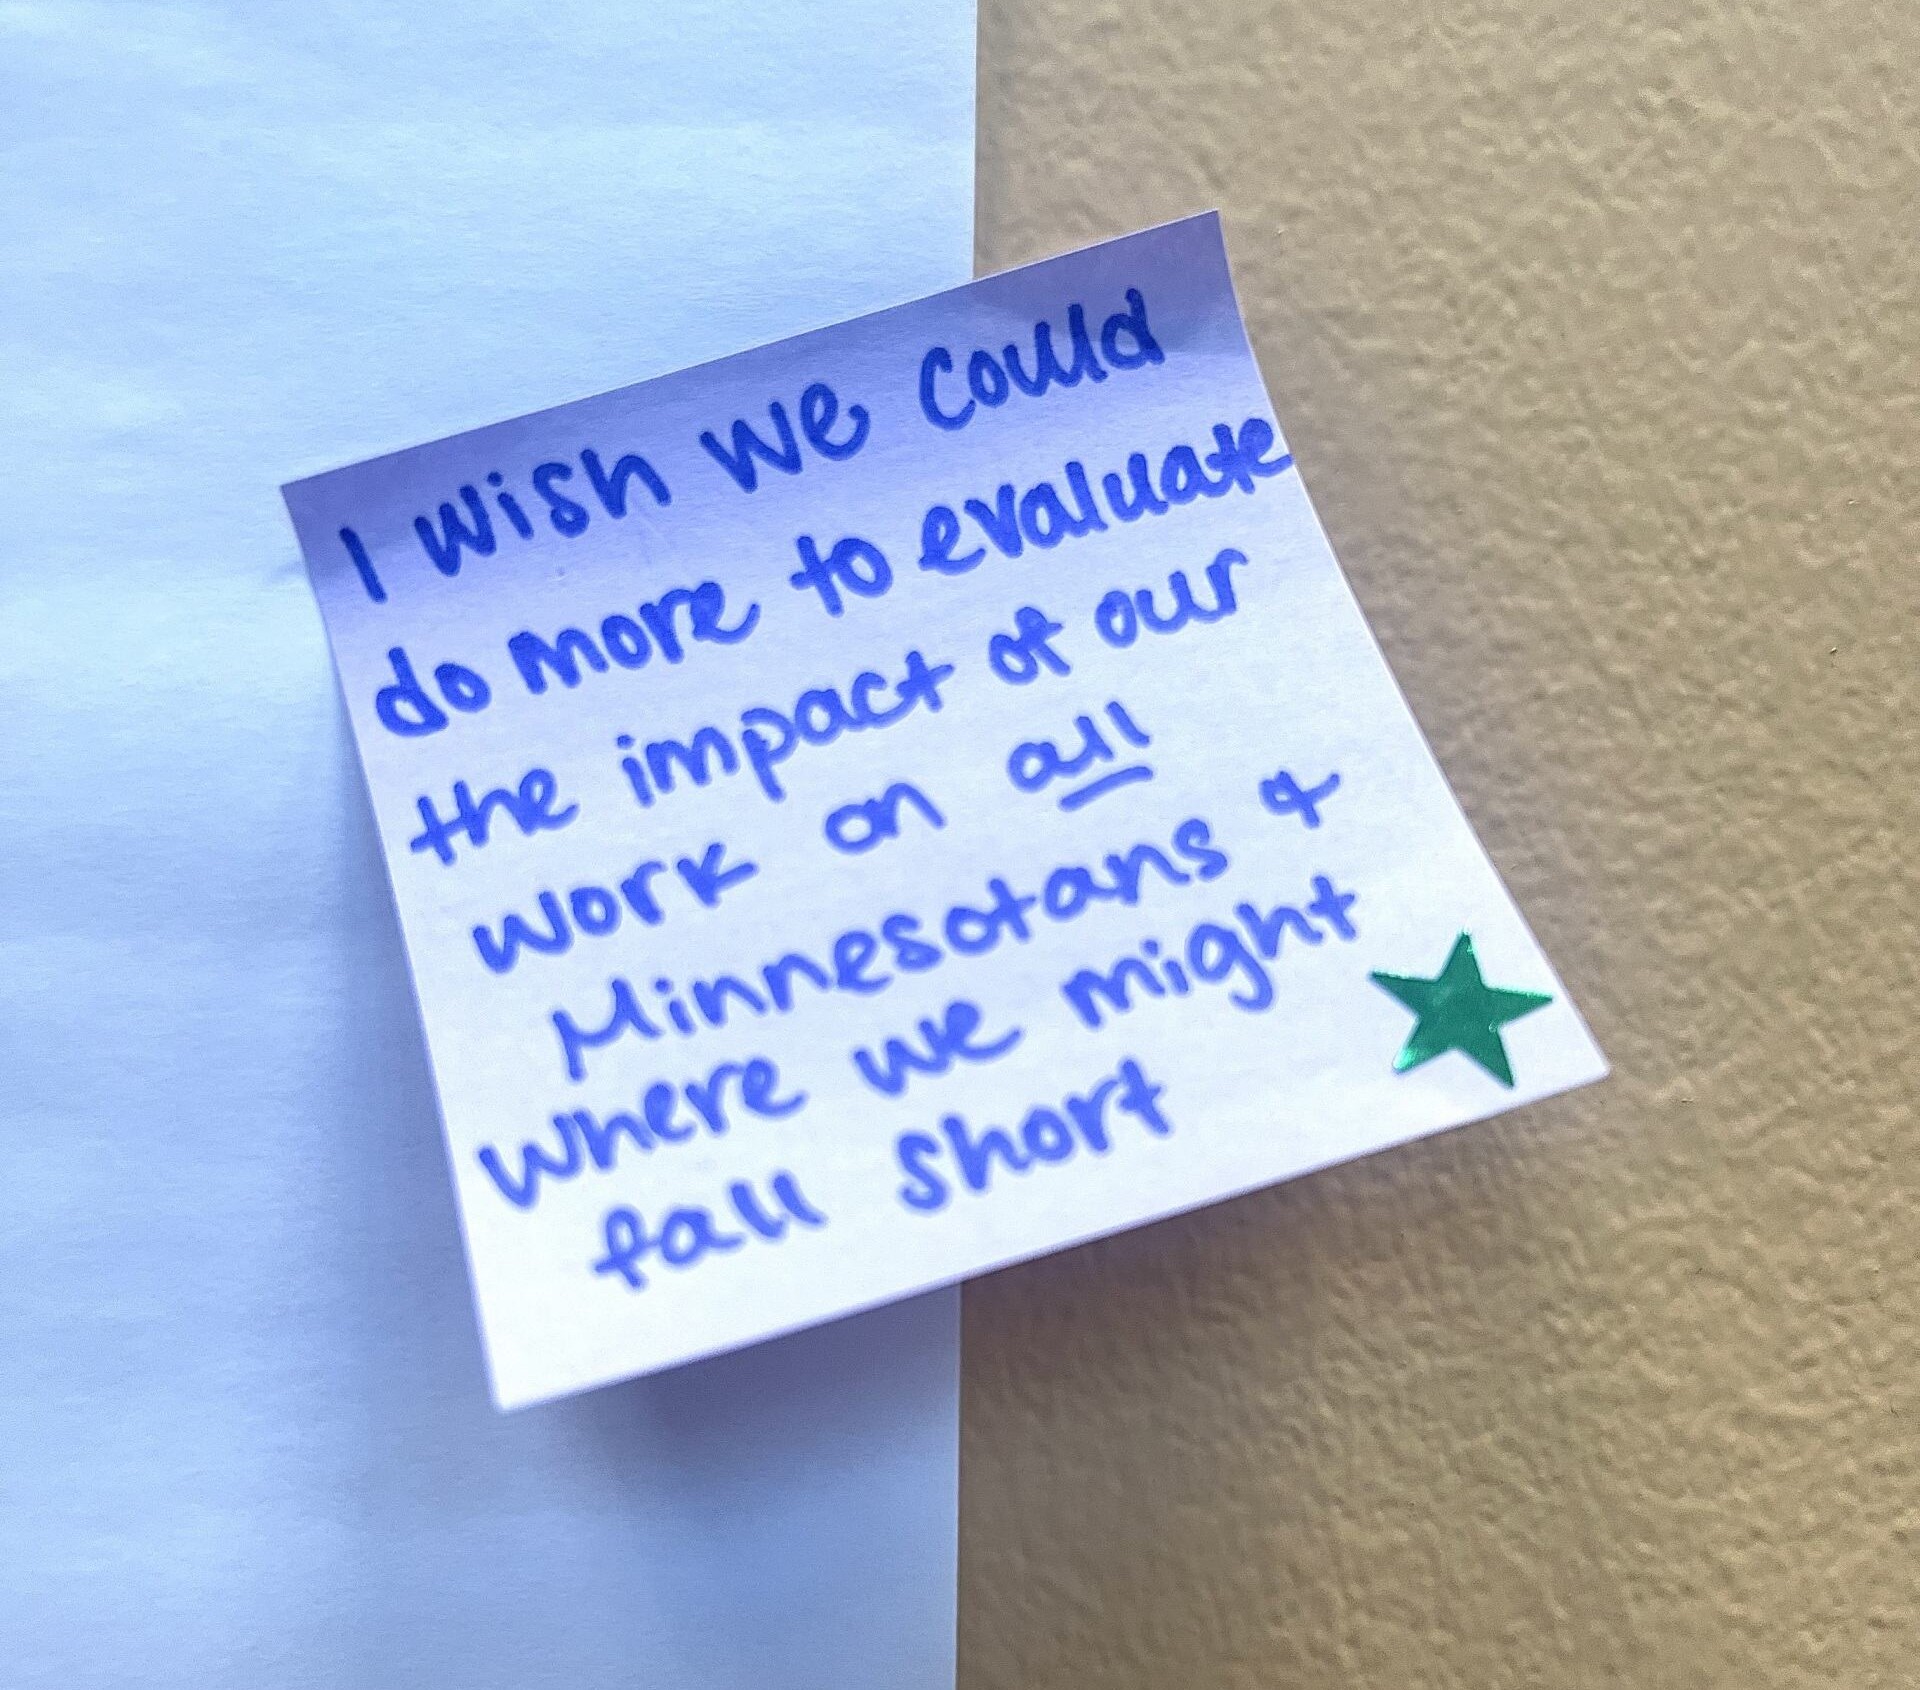 I wish we could
do more to evaluate
the impact of our
work on all
Minnesotans &
where we might
fall short